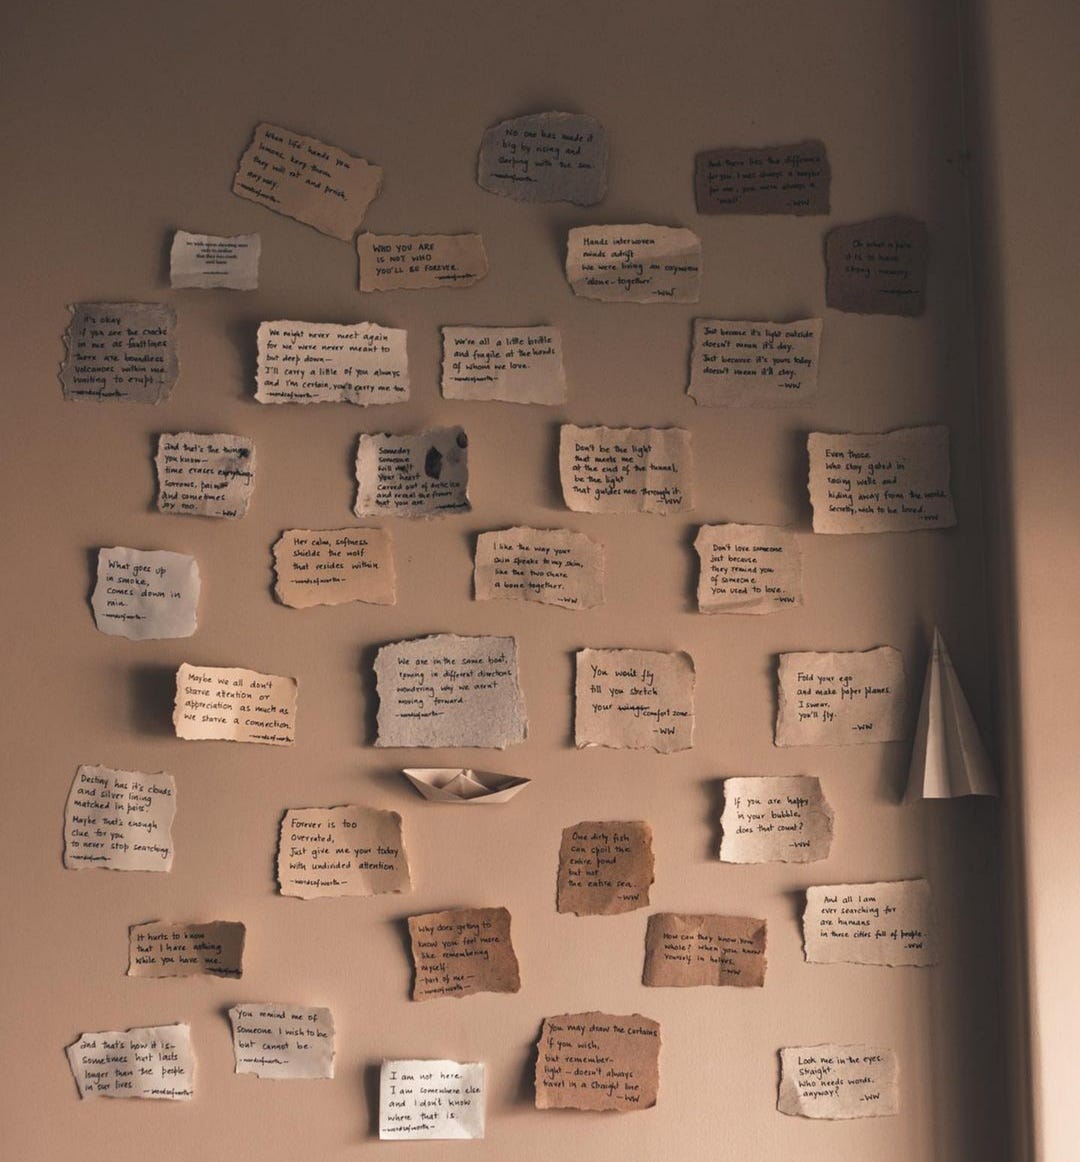 When life hands you
lemons, keep them
they will rot and perish,
anyway.
-wordsofworth-
No one has made it
big by rising and
sleeping with the sun.
-wordsofworth-
And there lies the difference
for you, I was always a
for me, you were always a
-WW
we wish upon shooting stars
only to realize
that they too crash
and burn
WHO YOU ARE
IS NOT WHO
YOU'LL BE FOREVER.
-wordsofworth-
Hands interwoven
minds adrift
We were living an oxymoron
'alone-together'
-WW
Oh what a pain
it is to have
memory.
it's okay
if you see the cracks
in me as faultlines
there are boundless
volcanoes within me
waiting to erupt—
-wordsofworth-
We might never meet again
for we were never meant to
but deep down—
I'll carry a little of you always
and I'm certain, you'll carry me too.
-wordsofworth-
We're all a little brittle
and fragile at the hands
of whom we love.
-wordsofworth-
Just because it's light outside
doesn't mean it's day.
Just because it's yours today
doesn't mean it'll stay.
-WW
and that's the thing
you know—
time erases everything
sorrows, pain
and sometimes
joy too.
-WW
Someday
Someone
will melt
your heart
carved out of
and reveal the
that you are.
Don't be the light
that meets me
at the end of the tunnel,
be the light
that guides me through it.
-WW
Even those
who stay gated in
raging walls and
hiding away from the world
secretly, wish to be loved.
-WW
What goes up
in smoke,
comes down in
rain.
-wordsofworth-
Her calm, softness
shields the wolf
that resides within
-wordsofworth-
I like the way your
skin speaks to my skin,
like the two share
a bone together.
-WW
Don't love someone
just because
they remind you
of someone
you used to love.
-WW
Maybe we all don't
starve attention or
appreciation as much as
we starve a connection.
-wordsofworth-
We are in the same boat,
rowing in different directions
wondering why we aren't
moving forward.
-wordsofworth-
You won't fly
till you stretch
your wings comfort zone.
-WW
Fold your ego
and make paper planes.
I swear,
you'll fly.
-WW
Destiny has it's clouds
and silver lining
matched in pairs.
Maybe that's enough
clue for you
to never stop searching.
-wordsofworth-
Forever is too
overrated,
Just give me your today
with undivided attention.
-wordsofworth-
If you are happy
in your bubble,
does that count?
-WW
One dirty fish
can spoil the
entire pond
but not
the entire sea.
-WW
And all I am
ever searching for
are humans
in these cities full of people.
-WW
It hurts to know
that I have nothing
while you have me.
-wordsofworth-
Why does getting to
know you feel more
like remembering
myself
-part of me-
-wordsofworth-
How can they know you
whole? when you know
yourself in halves.
-WW
and that's how it is-
sometimes hurt lasts
longer than the people
in our lives.
-wordsofworth-
You remind me of
someone I wish to be
but cannot be.
-wordsofworth-
I am not here.
I am somewhere else
and I don't know
where that is.
-wordsofworth-
You may draw the curtains
if you wish,
but remember—
light — doesn't always
travel in a straight line.
-WW
Look me in the eyes.
Straight.
Who needs words,
anyway?
-WW